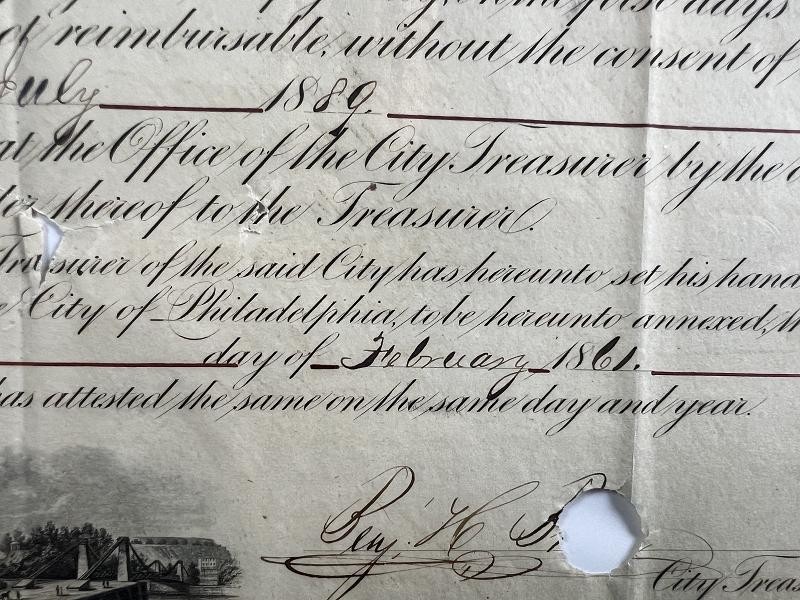 first days
of reimbursable, without the consent of
July 1889.
at the Office of the City Treasurer by the
thereof to the Treasurer.
Treasurer of the said City has hereunto set his hand
City of Philadelphia, to be hereunto annexed, th
day of February 1861.
has attested the same on the same day and year.
Benj. H.
City Treas